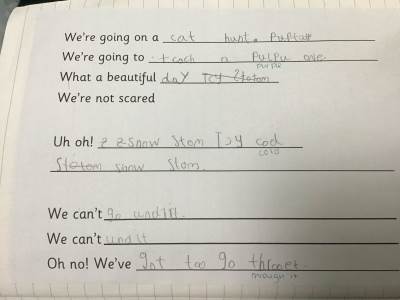 We're going on a cat hunt. Purfall
We're going to cach a PurPu one.
purple
What a beautiful day
We're not scared
Uh oh! snow Stom Icy cod
cold
snow Stom.
We can't go undit.
We can't undit
Oh no! We've got too go throoet.
through it